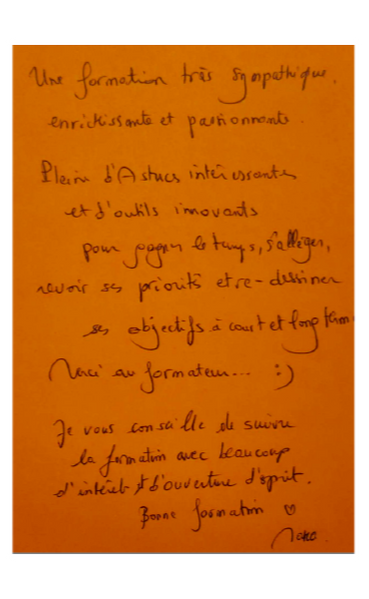 Une formation très sympathique,
enrichissante et passionnante.
Plein d'Astuces intéressantes
et d'outils innovants
pour gagner le temps, s'alléger,
revoir ses priorités et re-dessiner
ses objectifs à court et long terme
Merci au formateur... :)
Je vous conseille de suivre
la formation avec beaucoup
d'intérêt & d'ouverture d'esprit.
Bonne formation ♡